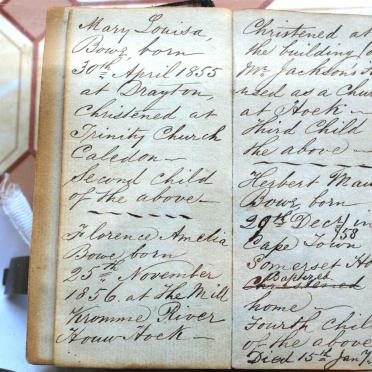 Mary Louisa,
Bowe, born
30th April 1855
at Drayton,
christened at
Trinity Church
Caledon—
Second child
of the above—
Florence Amelia
Bowe, born
25th November
1856. at The Mill
Kromme River
Houw Hock—
Christened at
the building
Mr Jackson's
used as a Chur
at Hock—
Third Child
the above—
Herbert Mau
Bowe, born
29th Decr, in
/58
Cape Town
Somerset
Baptized
Christened
home
Fourth chil
of the above
Died 15th Jany.